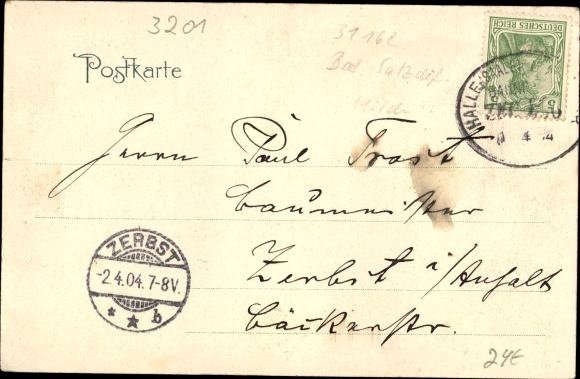 3201
31162
Bad Salzdet.
Hilde
Postkarte
DEUTSCHES REICH
5
HALLE (SAALE)
4
Herrn Paul Frost
Baumeister
Zerbst i/Anhalt
Bäckerstr.
ZERBST
-2.4.04.7-8V.
* * b
24€